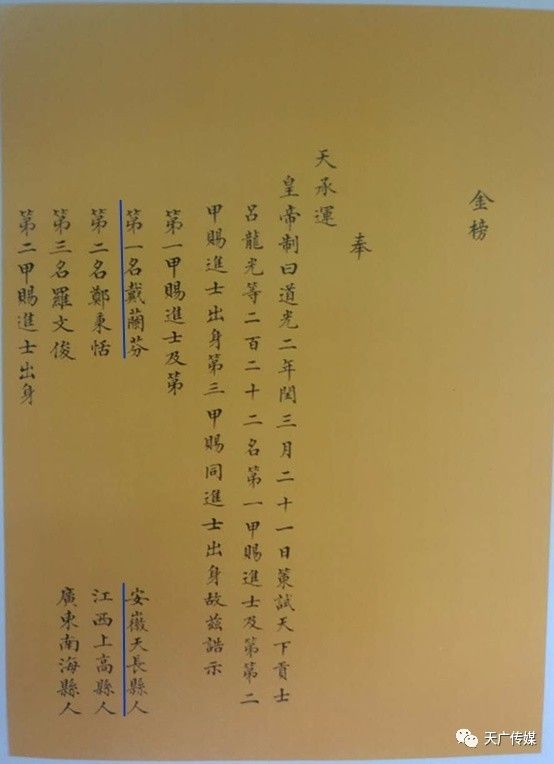 金榜
奉
天承運
皇帝制曰道光二年閏三月二十一日策試天下貢士
呂龍光等二百二十二名第一甲賜進士及第第二
甲賜進士出身第三甲賜同進士出身故茲誥示
第一甲賜進士及第
第一名戴蘭芬 安徽天長縣人
第二名鄭秉恬 江西上高縣人
第三名羅文俊 廣東南海縣人
第二甲賜進士出身
天广传媒